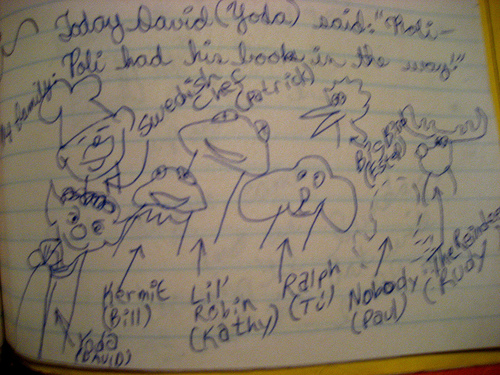 Today David (Yoda) said: "Roli-
Poli had his book in the way!"
My family:
Swedish
Chef
(Patrick)
Big Bird
(Ester)
Kermit
(Bill)
Lil'
Robin
(Kathy)
Ralph
(Ti)
Nobody
(Paul)
The Reindeer
(Rudy
Yoda
(David)